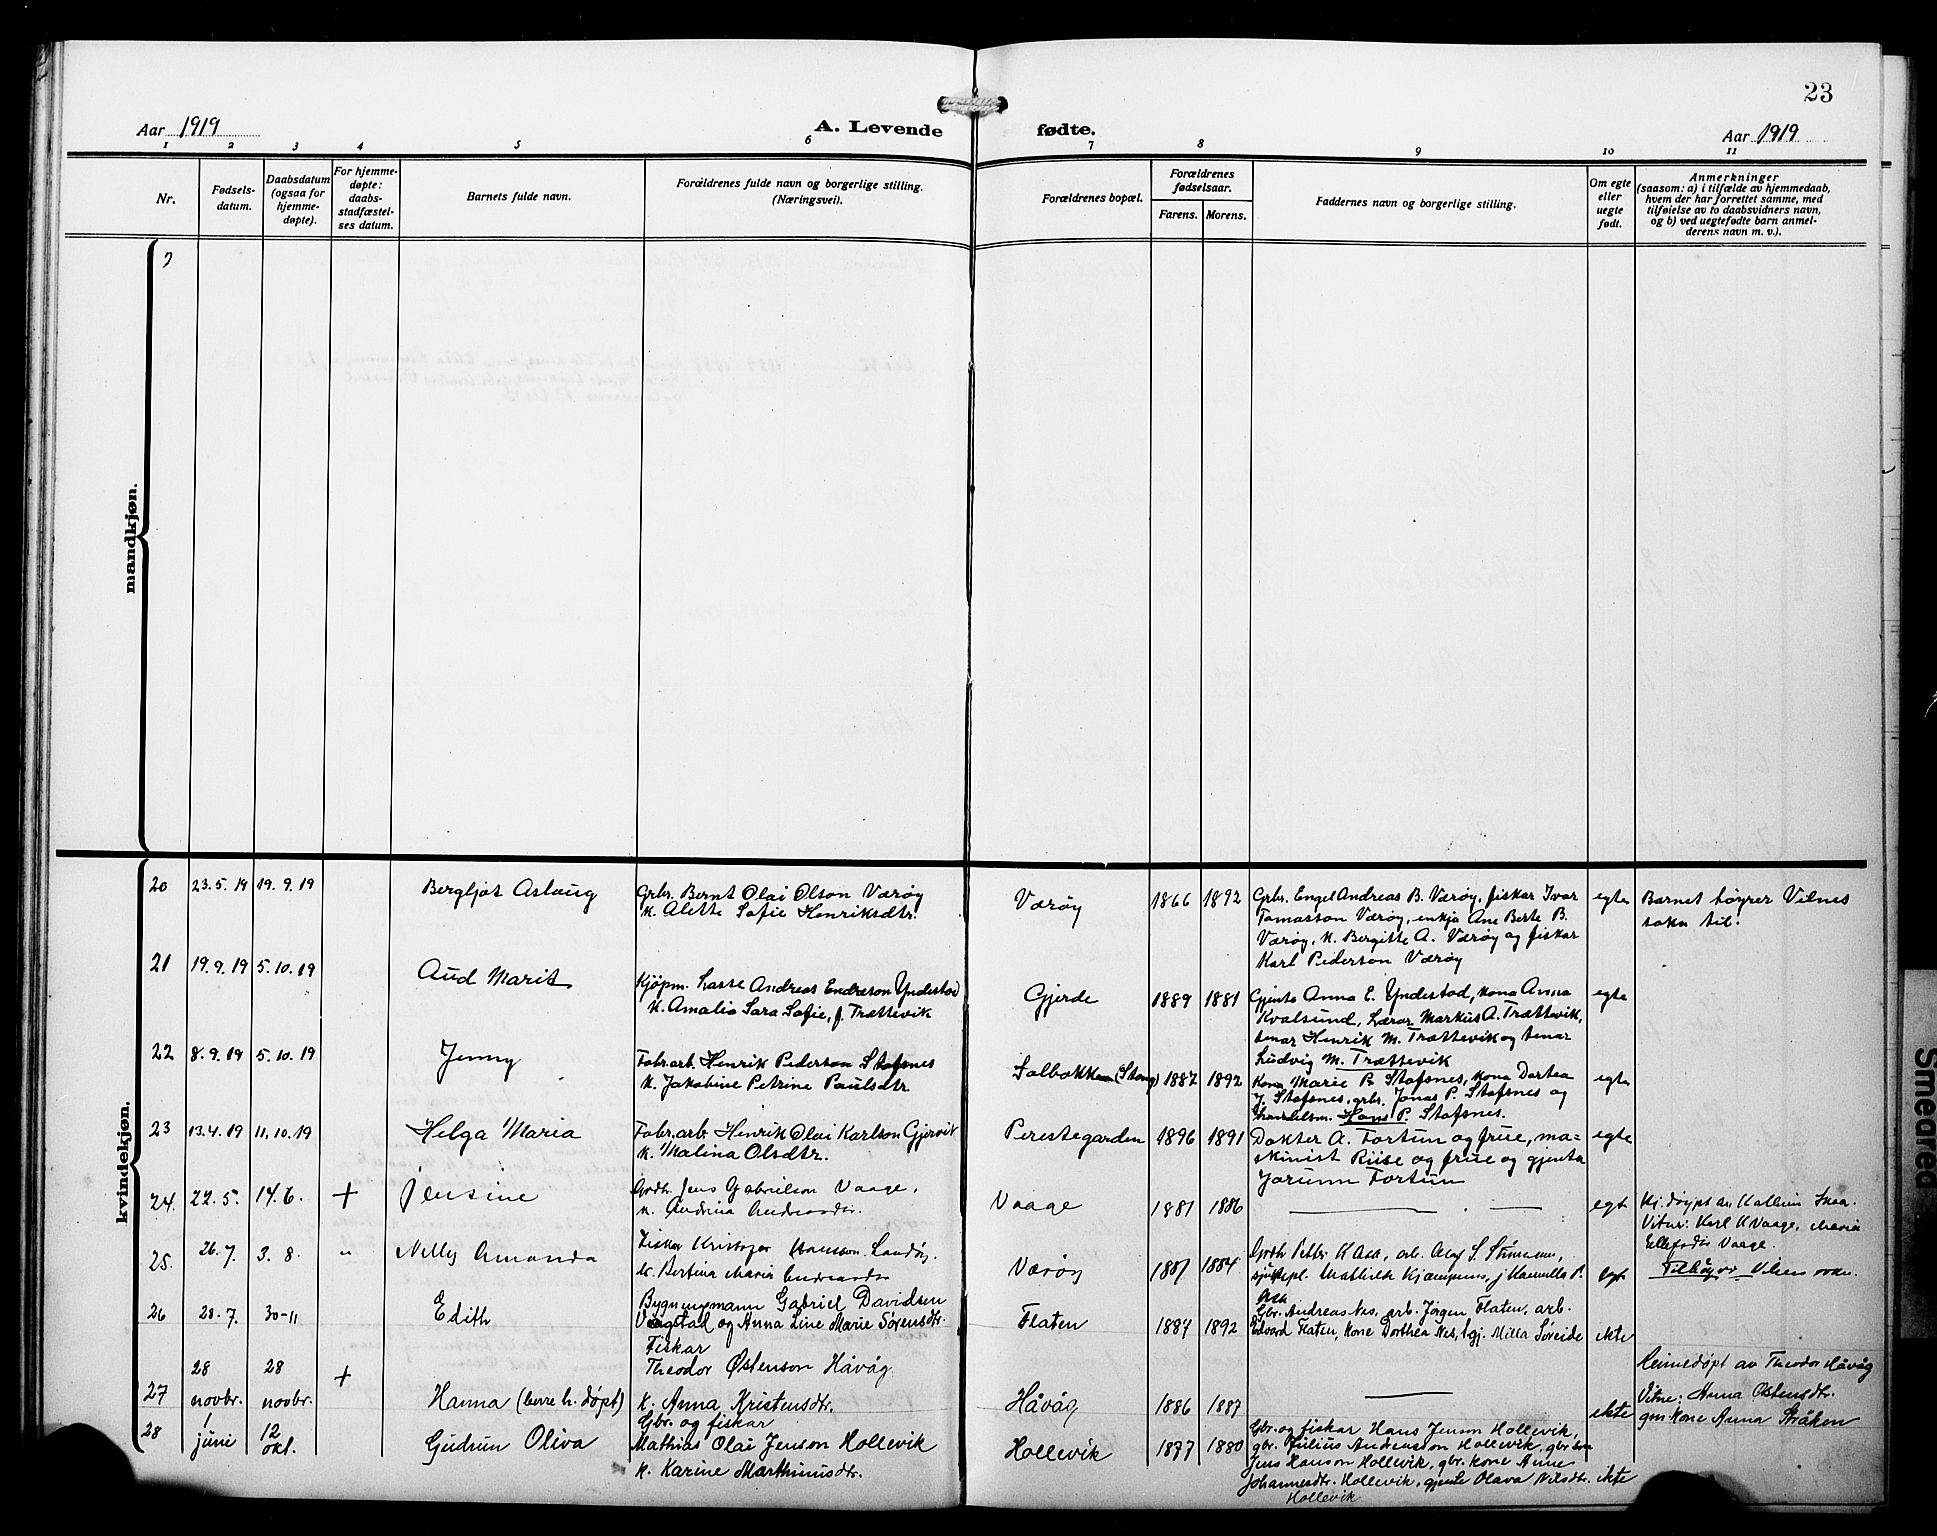 23
Aar 1919
A. Levende fødte.
Aar 1919
1 2 3 4 5 6 7 8 9 10 11
Nr.
Fødsels-
datum.
Daabsdatum
(ogsaa for
hjemme-
døpte).
For hjemme-
døpte:
daabs-
stadfæstel-
ses datum.
Barnets fulde navn.
Forældrenes fulde navn og borgerlige stilling.
(Næringsvei).
Forældrenes bopæl.
Forældrenes
fødselsaar.
Farens. Morens.
Faddernes navn og borgerlige stilling.
Om egte
eller
uegte
født.
Anmerkninger
(saasom: a) i tilfælde av hjemmedaab,
hvem der har forrettet samme, med
tilføielse av to daabsvidners navn,
og b) ved uegtefødte barn anmel-
derens navn m. v.).
mandkjøn.
kvindekjøn.
20 23.5.19 19.9.19
Bergljot Aslaug
Grbr. Bernt Olai Olson Værøy
k. Alette Sofie Henriksdtr.
Værøy
1866 1892
Grbr. Engel Andreas B. Værøy, fiskar Ivar
Tomasson Værøy, enkja Ane Berte B.
Værøy, k. Bergitte A. Værøy og fiskar
Karl Pederson Værøy
egte
Barnet høyrer Vilnes
sokn til.
21 19.9.19 5.10.19
Aud Marit
Kjøpm. Lasse Andreas Endreson Yndestad
k. Amalia Sara Sofie, f. Trættevik
Gjerde
1889 1881
Gjenta Anna E. Yndestad, kona Anna
Kvalsund, Lærar Markus A. Trættevik,
tenar Henrik M. Trættevik og tenar
Ludvig M. Trættevik
egte
22 8.9.19 5.10.19
Jenny
Fabr.arb. Henrik Pederson Stafsnes
k. Jakobine Petrine Paulsdtr.
Solbakken (Stong)
1887 1892
Kona Marie P. Stafsnes, kona Dortea
J. Stafsnes, grbr. Jonas P. Stafsnes og
handelsm. Hans P. Stafsnes.
egte
23 13.4.19 11.10.19
Helga Maria
Fabr.arb. Henrik Olai Karlson Gjervik
k. Malina Olsdtr.
Perestegarden
1896 1891
Dokter A. Fortun og frue, ma=
skinist Riise og frue og gjenta
Jorunn Fortun
egte
24. 22.5. 14.6. +
Jensine
Gbr. Jens Gabrielson Vaage.
k. Andrina Andreasdtr.
Vaage
1881 1886
egt
Hj. døypt av
Vitne: Karl K Vaage, Maria
Ellefsdtr Vaage.
25. 26.7. 3.8. "
Nelly Amanda
Fiskar Kristofer Hansson Landøy.
k. Bertina Maria Andreasdtr
Værøy
1881 1884
Petter K Aaa, arb. Olaf S.
Mathilde Kjempenes, j Kamilla P.
Aaa
egt
Tilhøyrer Vilnes sokn.
26 28.7. 30-11
Edith
Bygningsmann Gabriel Davidsen
Vågstad og Anna Line Marie Sørensdtr.
Flaten
1887 1892
Gbr. Andreas Nes, arb. Jørgen Flaten, arb.
Edvard Flaten, Kone Dorthea Nes, ugj. Milla Søreide
ekte
27 28 novbr. 28 novbr. +
Hanna (berre h. døpt)
Fiskar
Theodor Østenson Håvåg
k. Anna Kristensdtr.
Håvåg
1886 1887
ekte
Heimedøpt av Theodor Håvåg
Vitne: Anna Østensdtr.
gm. kone Anna Stråken
28 1 juni 12 okt.
Gudrun Oliva
Gbr. og fiskar
Mathias Olai Jenson Hollevik
k. Karine Marthinusdtr.
Hollevik
1877 1880
Gbr. og fiskar Hans Jenson Hollevik,
gbr. Julius Andreasson Hollevik, gbr.son
Jens Hanson Hollevik, gbr. kone Anne
Johannesdtr. Hollevik, gjente Olava Nilsdtr.
Hollevik
ekte
Smeared